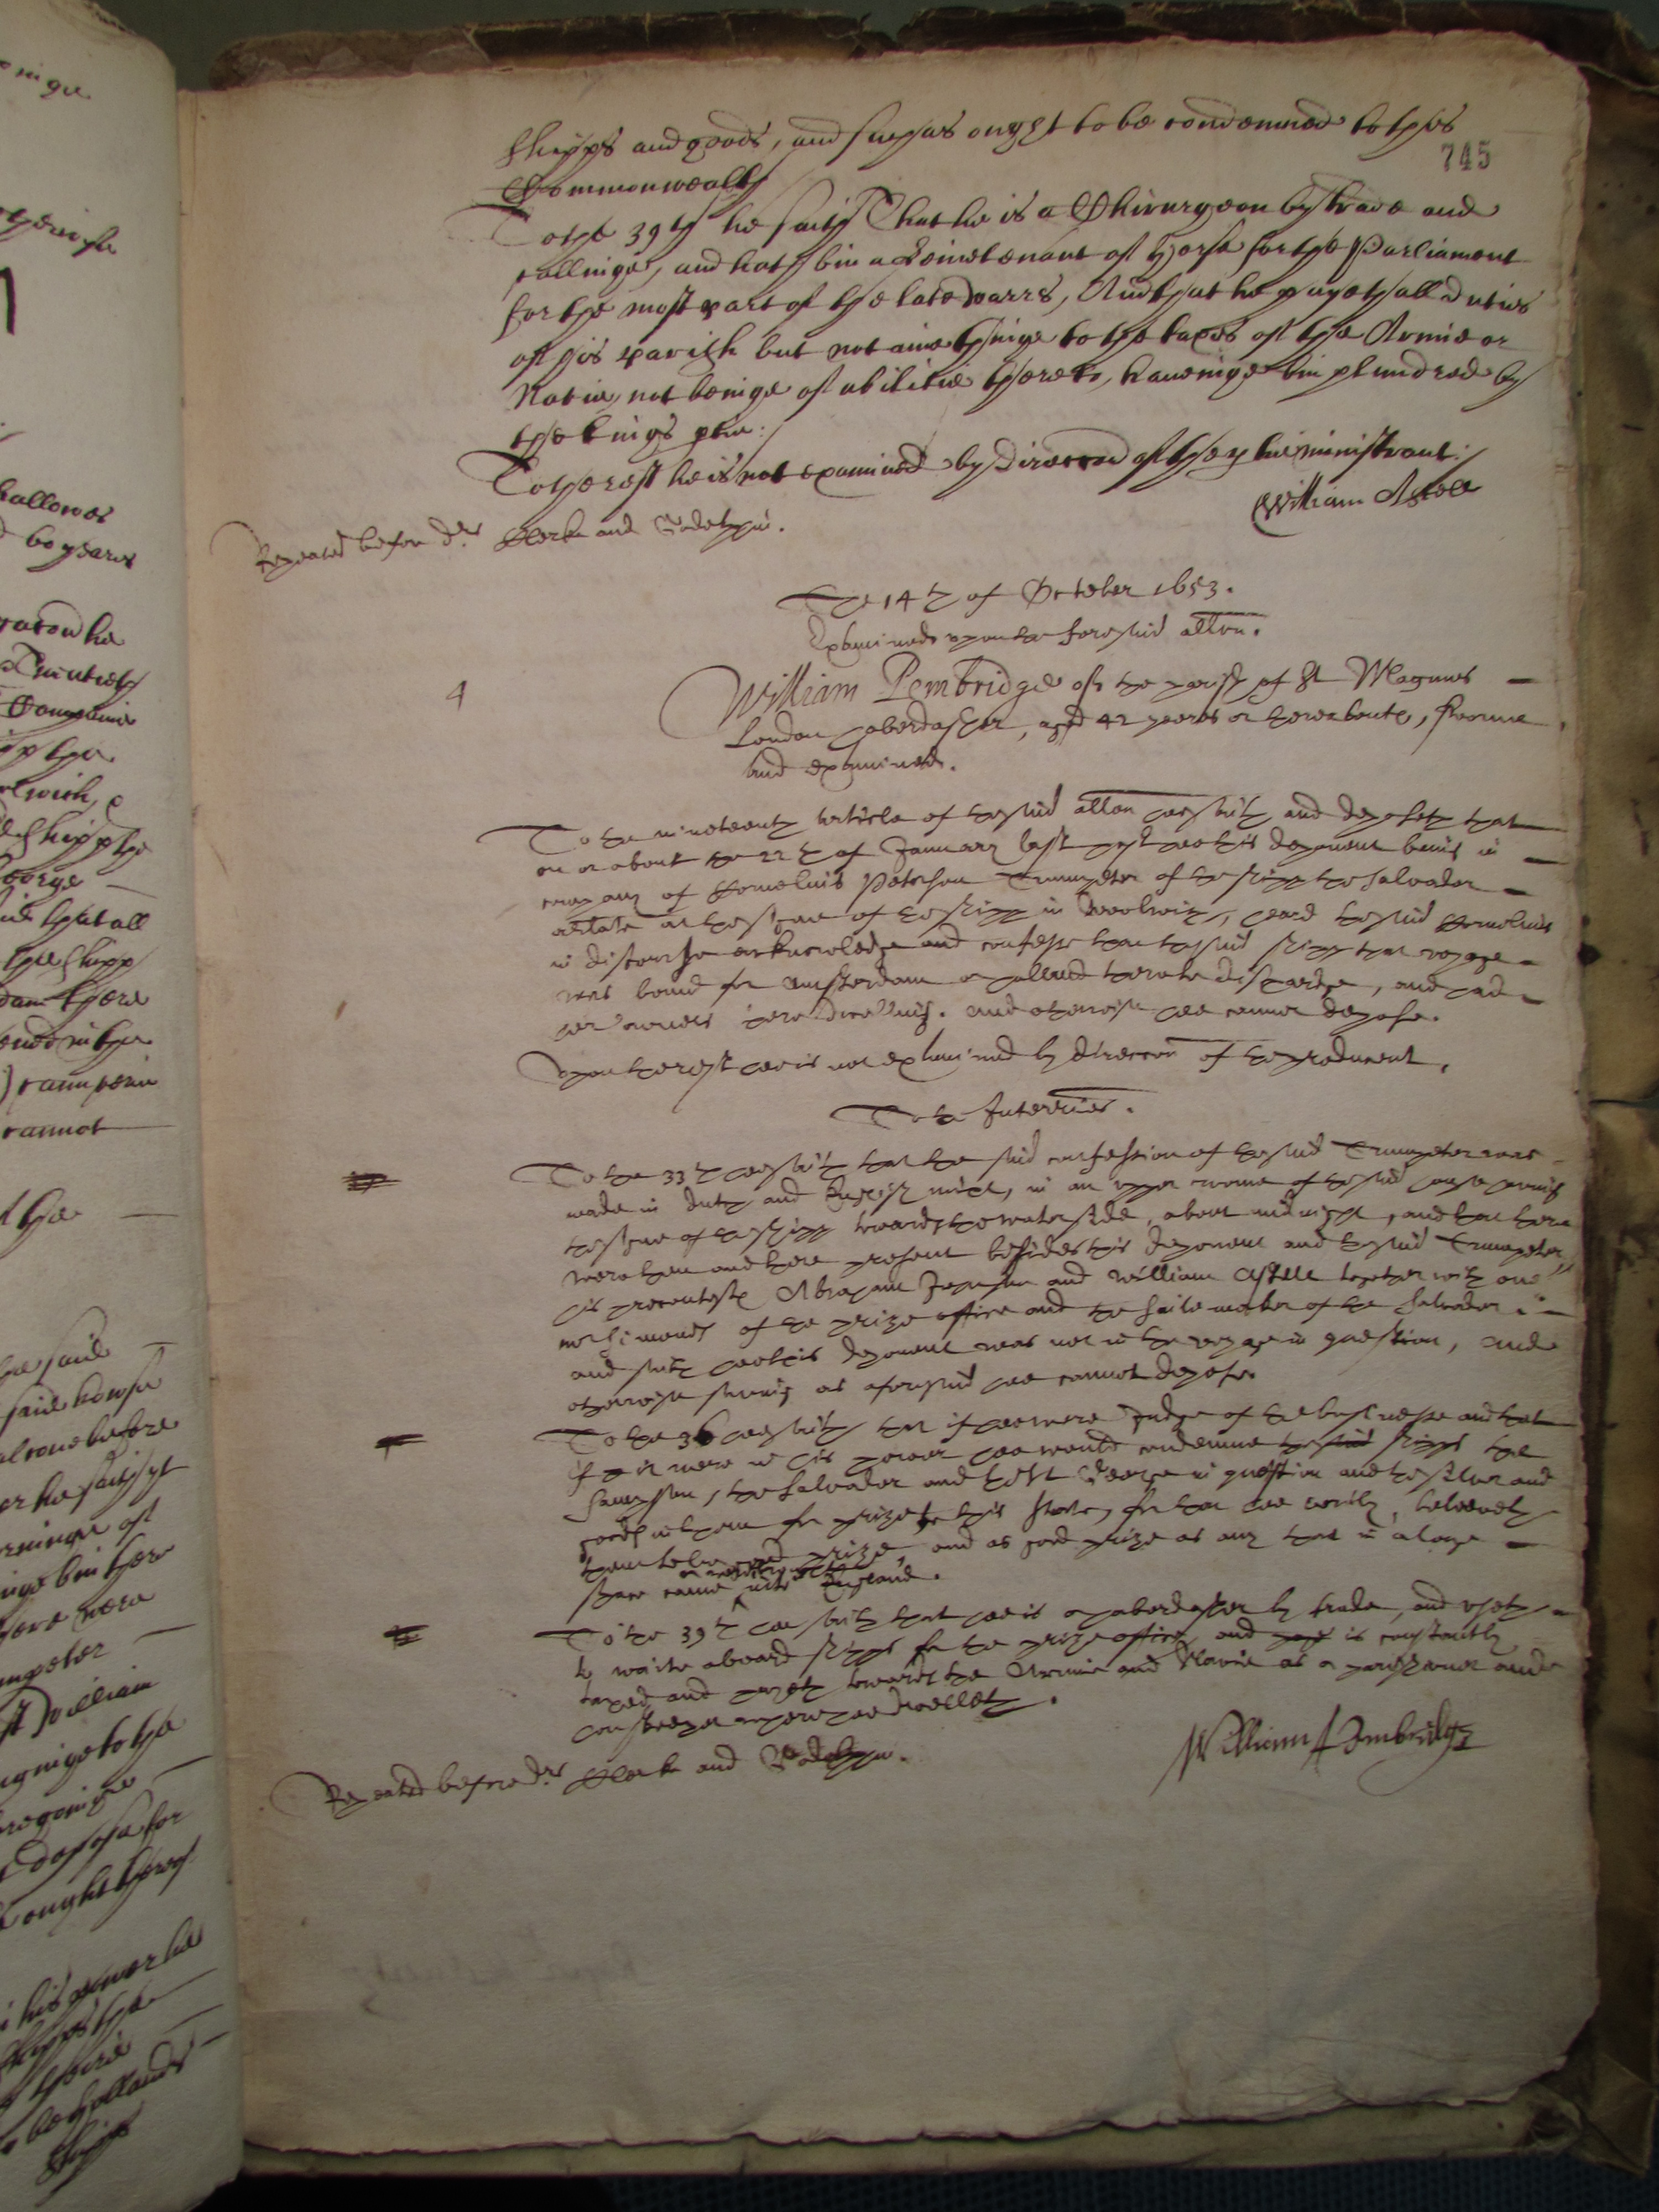 shipps and goods, and such as ought to be condemned to this
745
Commonwealth
To the 39th he saith That he is a Chirurgeon by trade and
callinge, and hath bin a Leiuetenant of Horse for the Parliament
for the most part of the late warrs, And that he payeth all duties
of his parish but not anie thinge to the taxes of the Armie or
Navie, not beinge of abilitie thereto, haveinge bin plundred by
the kings ptie:
To the rest he is not examined by direccon of the ministrant:/
William Astell
Repeated before drs Clerk and Godolphin.
The 14th of October 1653.
Examined upon the foresaid allon.
4
William Pembridge of the parish of St Magnus
London haberdasher, aged 42 yeeres or thereabouts, sworne
and examined.
To the nineteenth article of the said allon hee saith and deposeth that
on or about the 22th of January last past hee this deponent being in
company of Cornelius Peterson Trumpeter of the shipp the Salvador
arlate at the signe of the shipp in Woolwich, heard the said Cornelius
in discourse acknowledge and confesse that the said shipp that voyage
was bound for Amsterdam in holland there to discharge, and had
her owners there dwelling. and otherwise hee cannot depose.
Upon the rest hee is not examined by direccon of the producent.
To the Interries.
To the 33th hee saith that the said confession of the said Trumpeter was
made in dutch and English mixt, in an upper roome of the said house having
the signe of the shipp towards the waterside, about midnight, and that there
were then and there present besides this deponent and the said Trumpeter,
his precontests Abraham Johnson and William Astell together with one
mr Simonds of the prize office and the saile maker of the Salvador.
and saith hee this deponent was not in the voyage in question, and
otherwise saving as aforesaid hee cannot depose.
To the 36 hee saith that if hee were Judge of the businesse and that
if it were in his power hee would condemne the said shipps the
Sampson, the Salvador and the St George in question and the silver and
goods in them for prize to this State, for that hee verily beleeveth
them to be good prize, and as good prize as any that in a longe
space came into England.
To the 39th hee saith that hee is a haberdasher by trade, and useth
to waite aboard shipps for the prize office, and payes is constantly
taxed and payeth towards the Armie and Navie as a parishioner and
housekeeper where hee dwelleth.
William Pembridge
Repeated before drs Clerk and Godolphin.